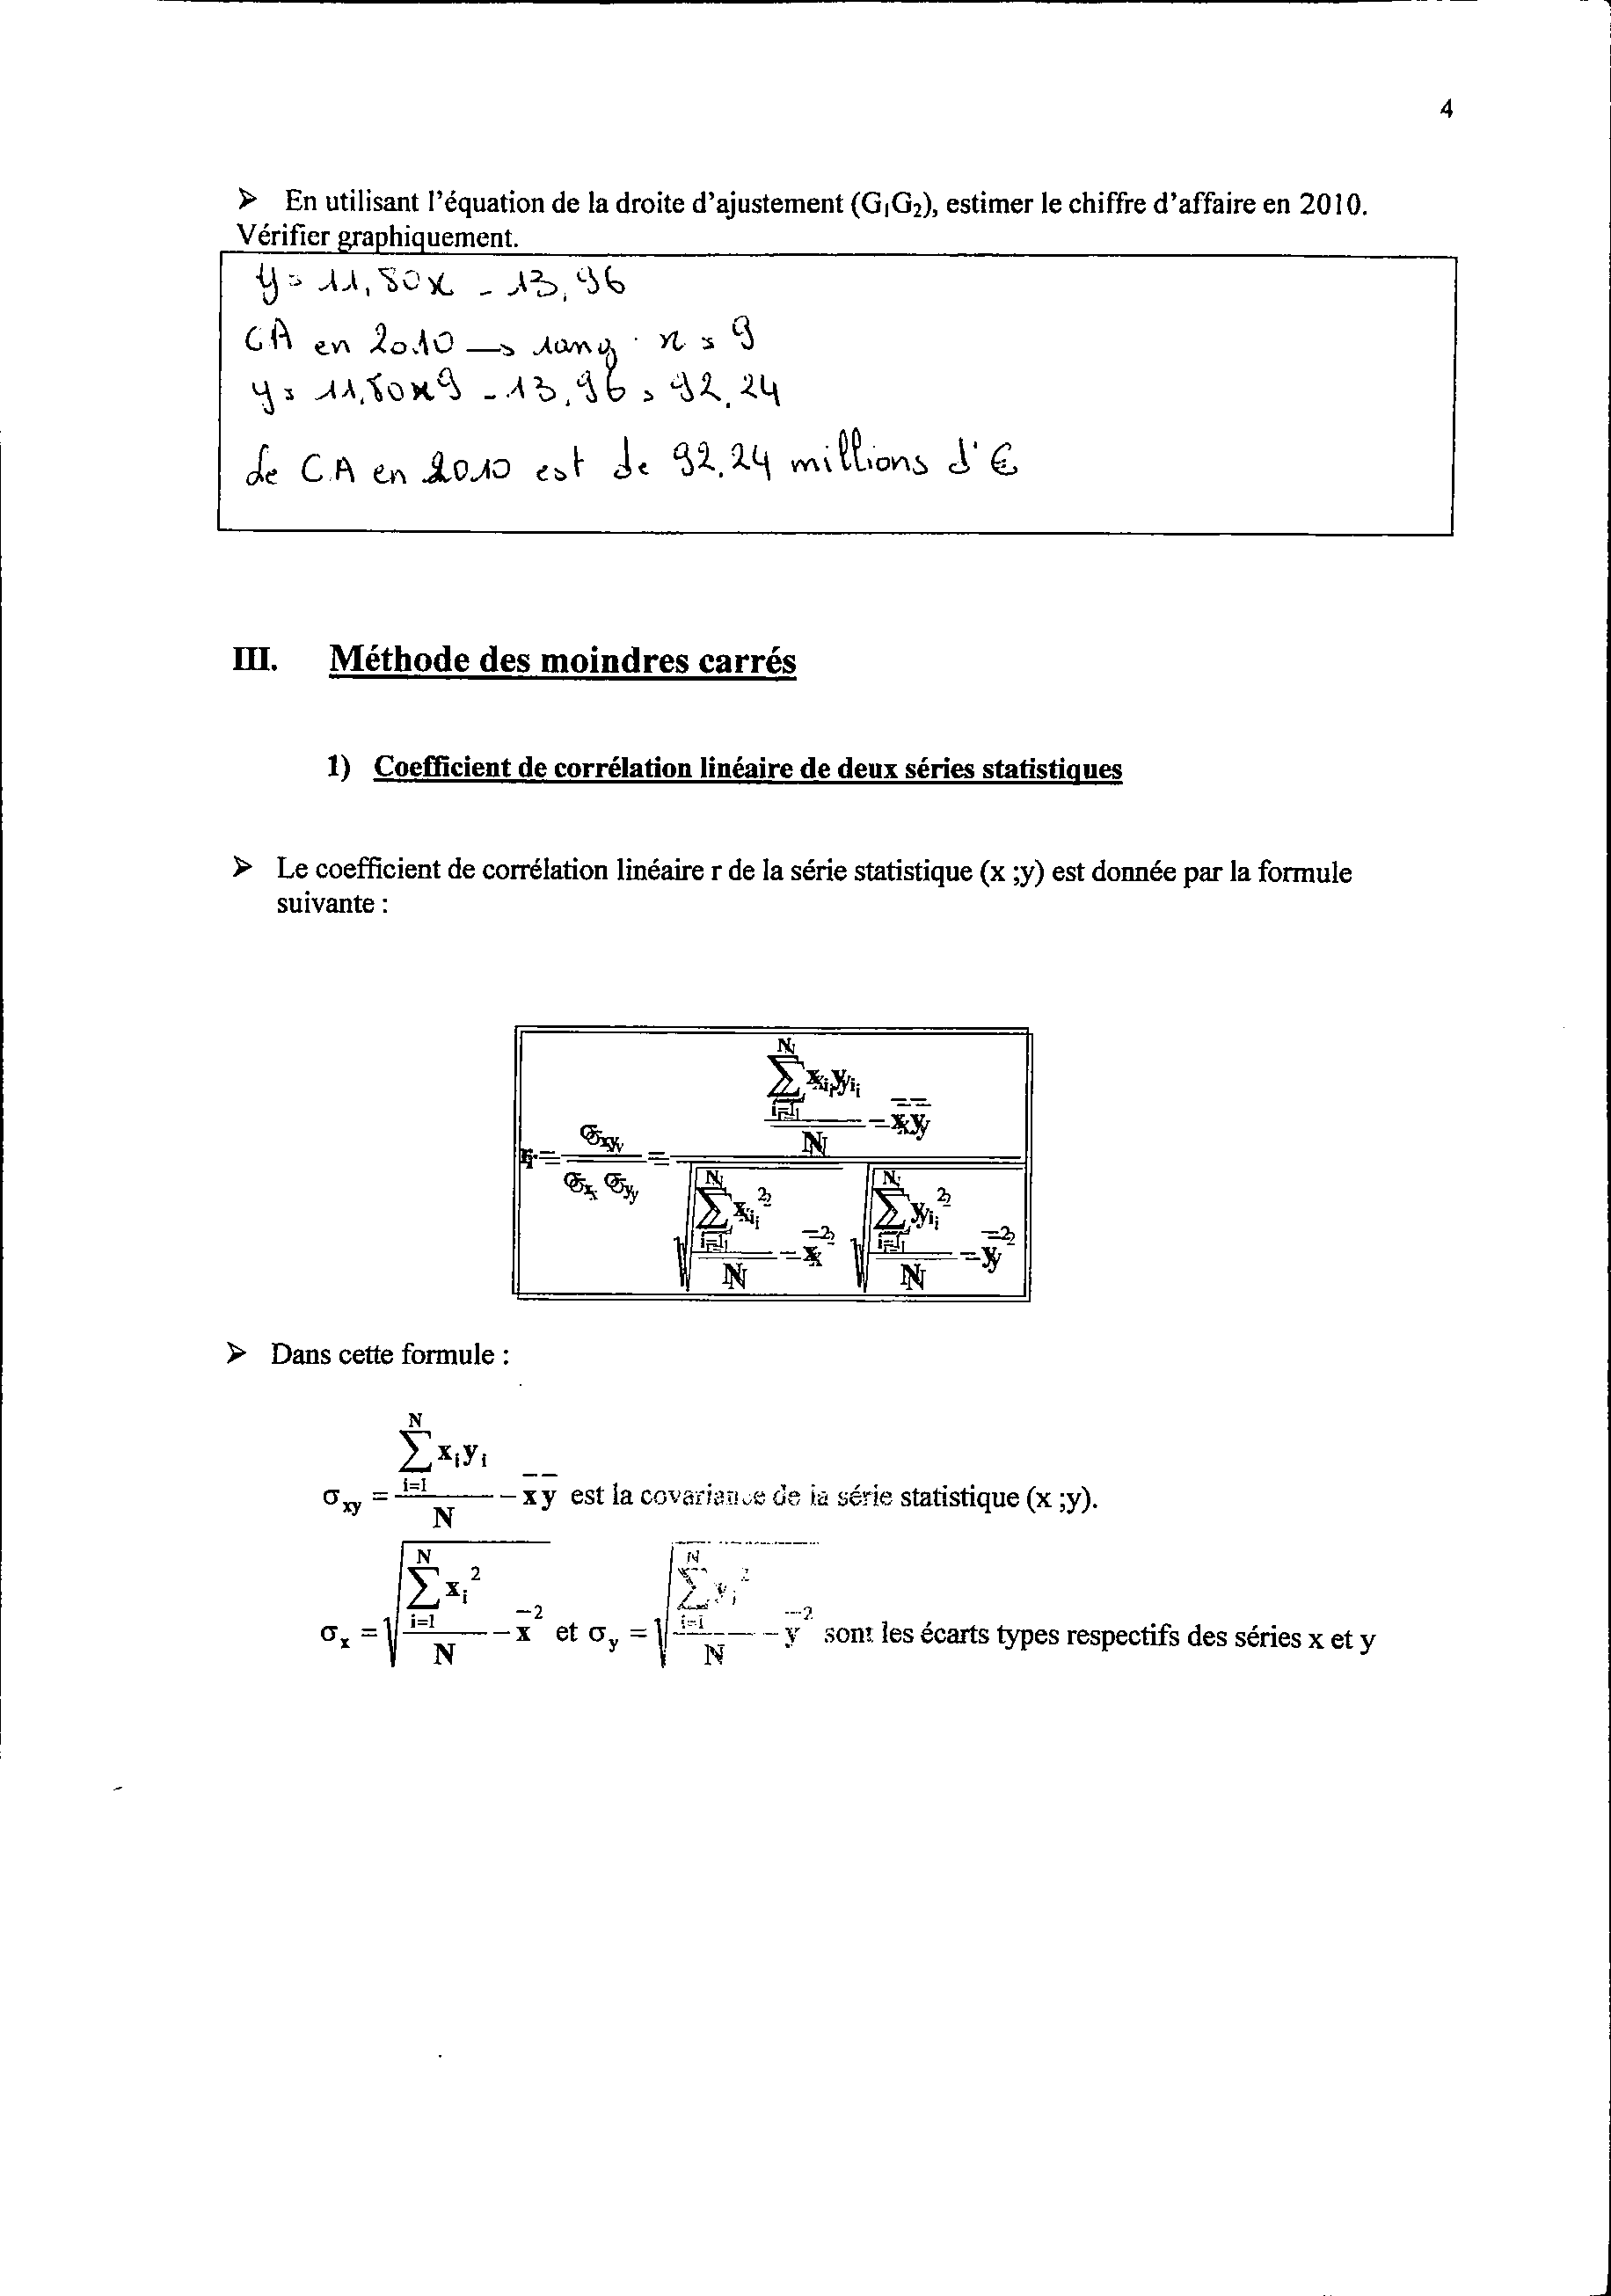 4
➢ En utilisant l'équation de la droite d'ajustement (G₁G₂), estimer le chiffre d'affaire en 2010.
Vérifier graphiquement.
y = 11,80x - 13,96
CA en 2010 → rang x = 9
y = 11,80×9 - 13,96 = 92,24
Le CA en 2010 est de 92,24 millions d'€
III. Méthode des moindres carrés
1) Coefficient de corrélation linéaire de deux séries statistiques
➢ Le coefficient de corrélation linéaire r de la série statistique (x ;y) est donnée par la formule
suivante :
r = σ_xy / (σ_x σ_y) = ((∑_{i=1}^{N} x_i y_i)/N − x̄ ȳ) / (√((∑_{i=1}^{N} x_i²)/N − x̄²) √((∑_{i=1}^{N} y_i²)/N − ȳ²))
➢ Dans cette formule :
σ_xy = (∑_{i=1}^{N} x_i y_i)/N − x̄ ȳ est la covariance de la série statistique (x ;y).
σ_x = √((∑_{i=1}^{N} x_i²)/N − x̄²) et σ_y = √((∑_{i=1}^{N} y_i²)/N − ȳ²) sont les écarts types respectifs des séries x et y